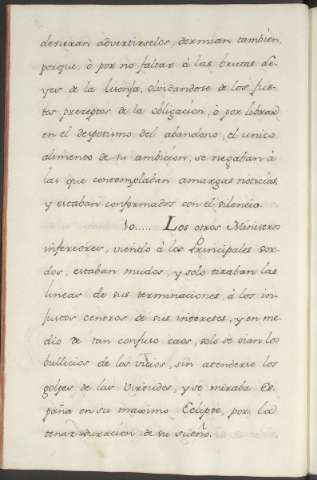 devieran advertirselos, dormian tambien,
porque, ò por no faltar à las brutas le-
yes de la lisonja, olvidandose de los jus-
tos preceptos de la obligacion, ò por lograr
en el despotismo del abandono, el unico
alimento de su ambicion, se negaban à
las que contemplaban amargas noticias,
y estaban conformados con el silencio.
10..... Los otros Ministros
inferiores, viendo à los Principales sor-
dos, estaban mudos, y solo tiraban las
lineas de sus terminaciones, à los in-
justos centros de sus intereses, y en me-
dio de tan confuso caos, solo se oian los
bullicios de los vicios, sin atenderse los
golpes de las Virtudes, y se miraba Es-
paña en su maximo Eclipse, por la
tenaz duracion de su sueño.